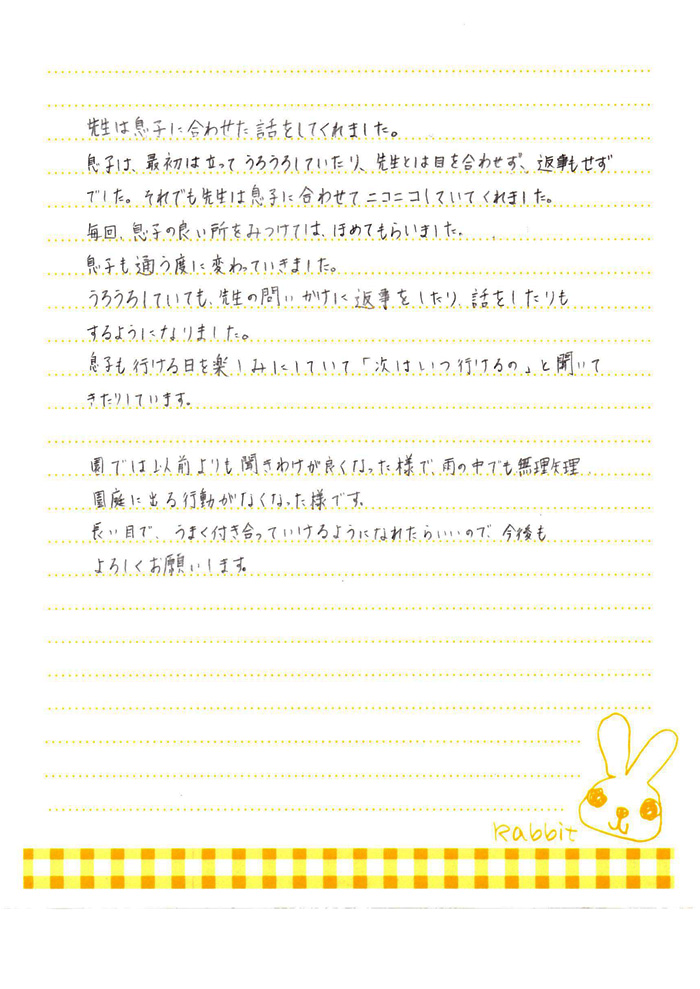 先生は息子に合わせた話をしてくれました。
息子は、最初は立ってうろうろしていたり、先生とは目を合わせず、返事もせず
でした。それでも先生は息子に合わせてニコニコしていてくれました。
毎回、息子の良い所をみつけては、ほめてもらいました。
息子も通う度に変わっていきました。
うろうろしていても、先生の問いかけに返事をしたり、話をしたりも
するようになりました。
息子も行ける日を楽しみにしていて「次はいつ行けるの」と聞いて
きたりしています。
園では以前よりも聞きわけが良くなった様で、雨の中でも無理矢理
園庭に出る行動がなくなった様です。
長い目で、うまく付き合っていけるようになれたらいいので、今後も
よろしくお願いします。
Rabbit